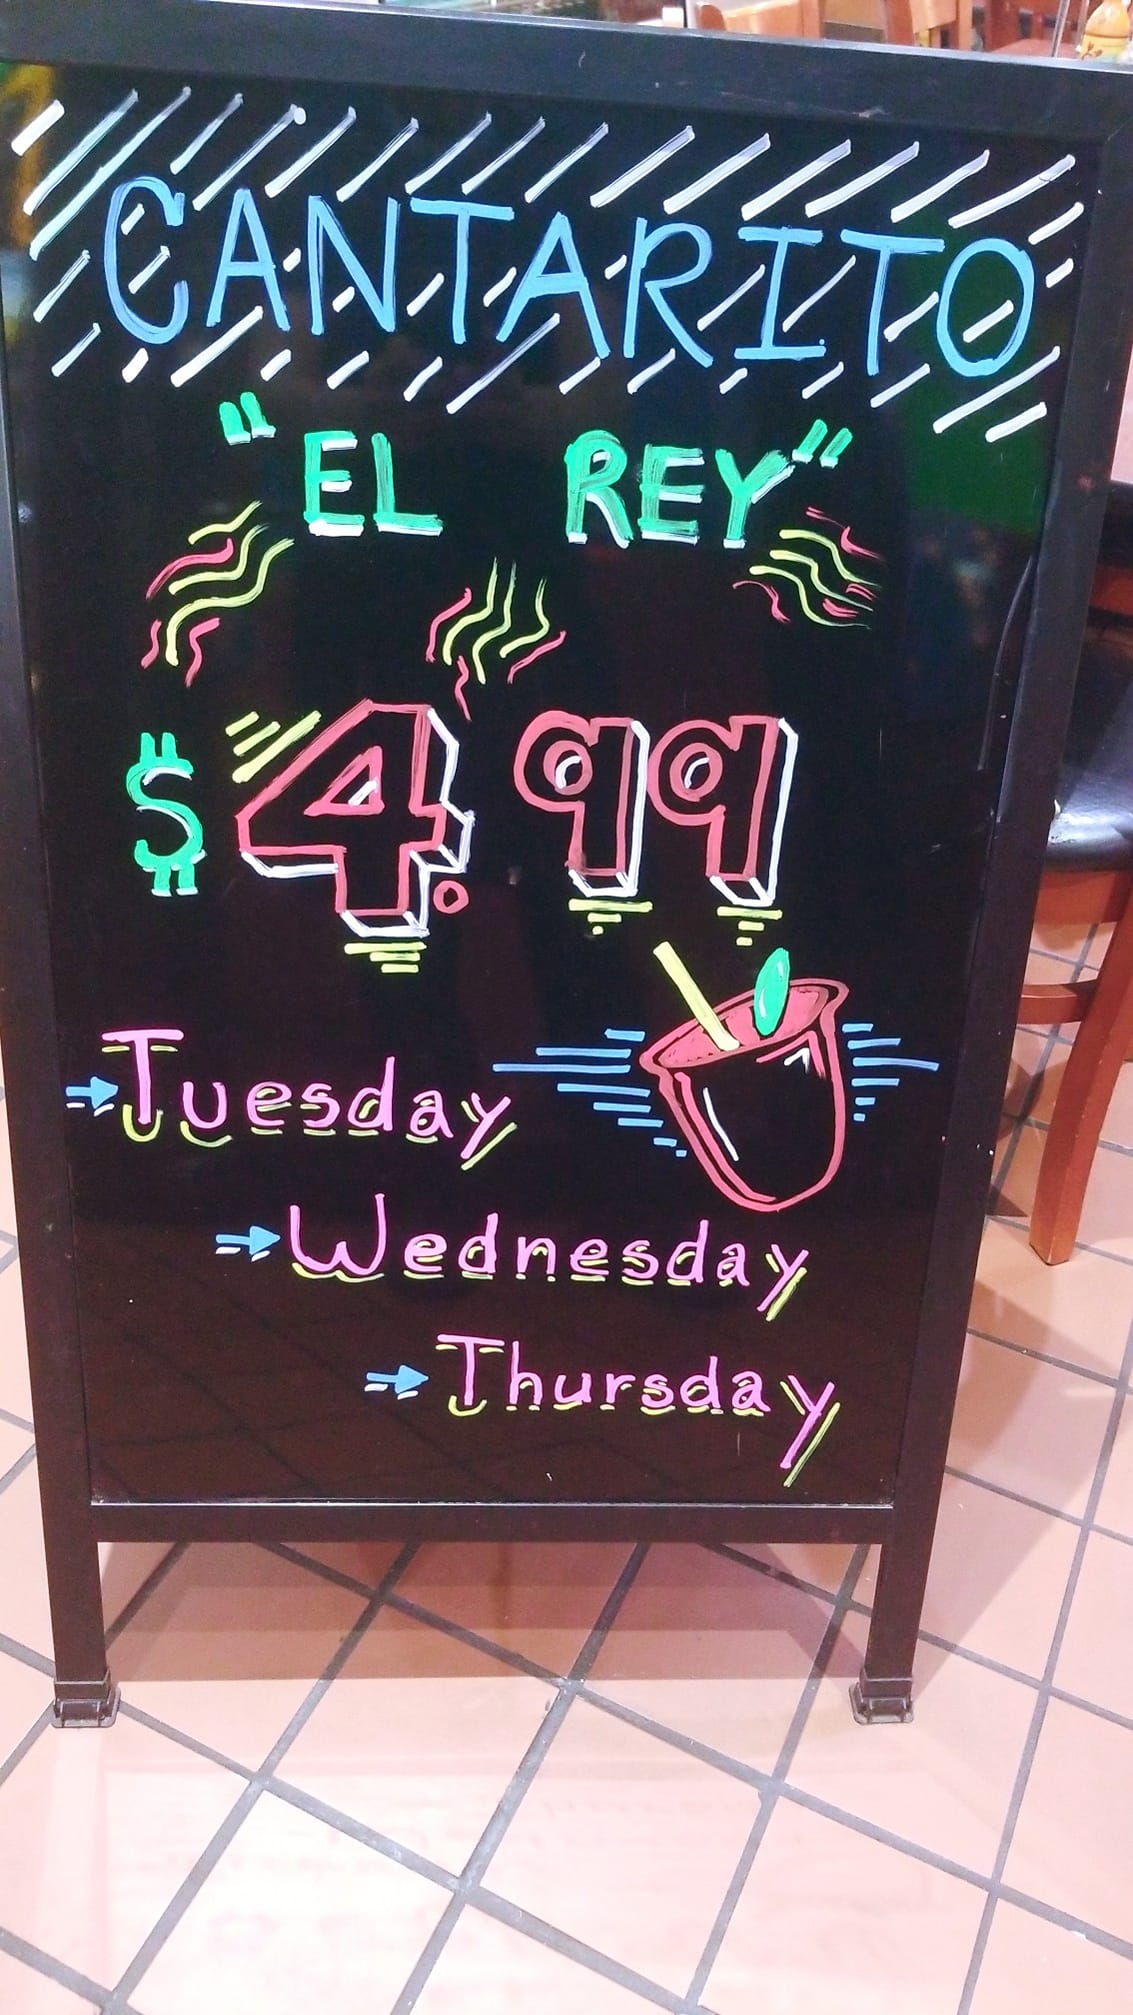 CANTARITO
"EL REY"
$4.99
Tuesday
Wednesday
Thursday